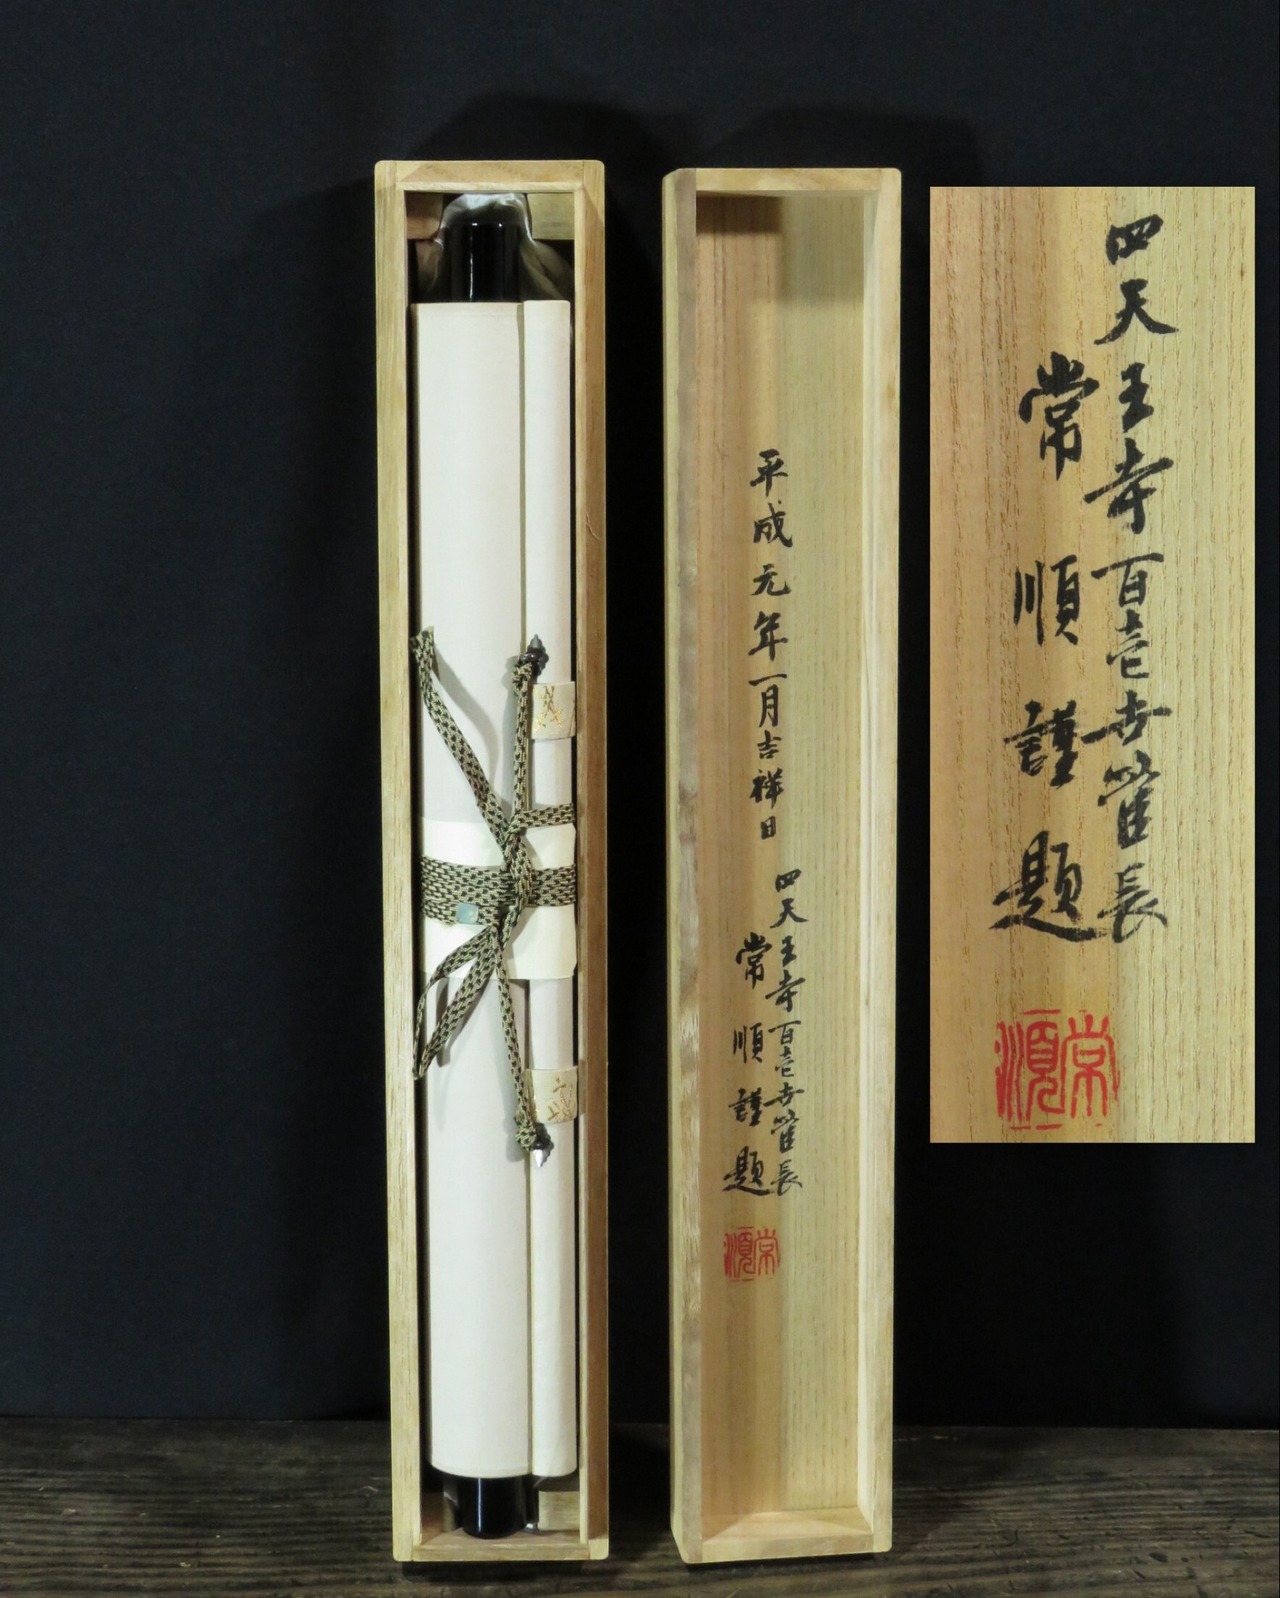 平成元年一月吉祥日
四天王寺百壱世管長
常順謹題
常順
四天王寺百壱世管長
常順謹題
常順